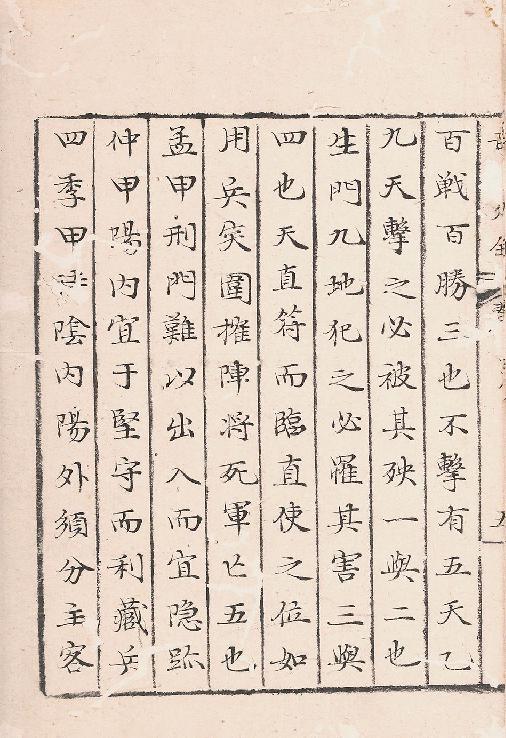 百戦百勝三也不擊有五天乙
九天擊之必被其殃一與二也
生門九地犯之必罹其害三與
四也天直符而臨直使之位如
用兵突圍摧陣将死軍亡五也
孟甲刑門難以出入而宜隐跡
仲甲陽内宜于堅守而利藏兵
四季甲 陰内陽外須分主客